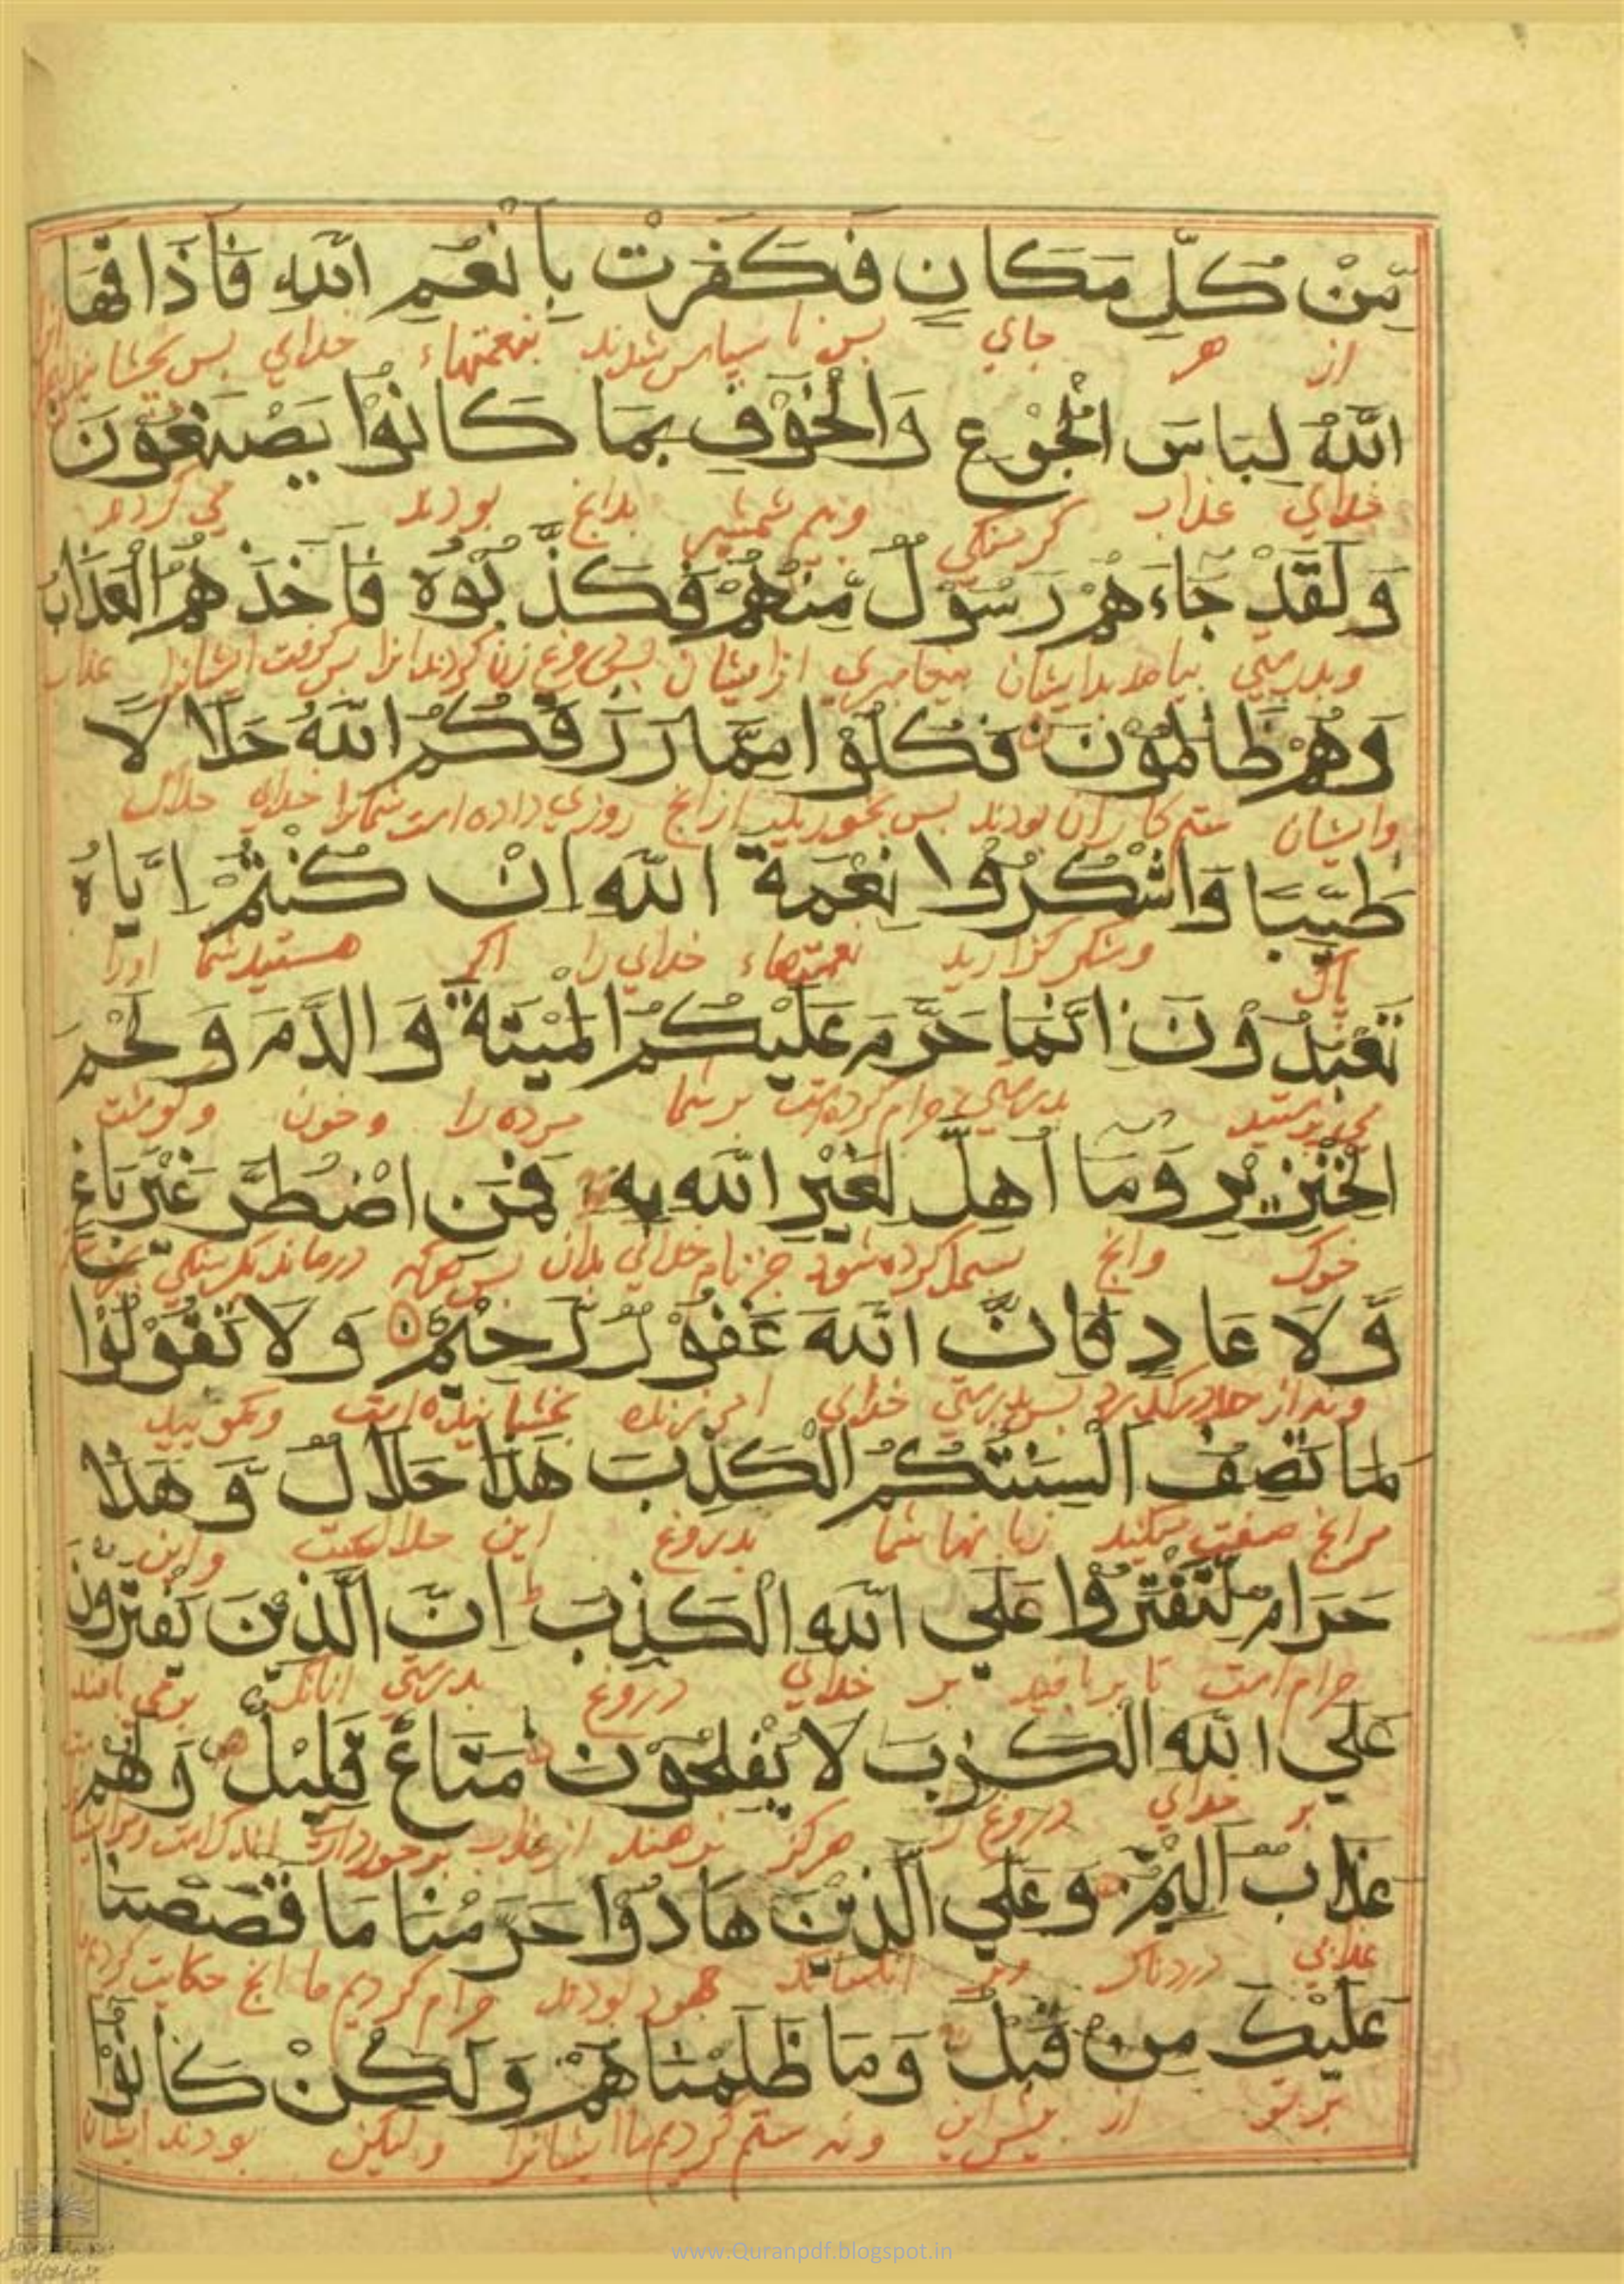 مِّنْ كُلِّ مَكَانٍ فَكَفَرَتْ بِاَنْعُمِ اللّٰهِ فَاَذَاقَهَا
از هر جاي پس ناسپاس شدند بنعمتهاء خداي پس بچشانيد
اللّٰهُ لِبَاسَ الْجُوْعِ وَالْخَوْفِ بِمَا كَانُوْا يَصْنَعُوْنَ
خداي عذاب گرسنگي وبيم شمشير بدانچ بودند مي كردند
وَلَقَدْ جَآءَهُمْ رَسُوْلٌ مِّنْهُمْ فَكَذَّبُوْهُ فَاَخَذَهُمُ الْعَذَابُ
وبدرستي بيامد بديشان پيغامبري ازايشان پس دروغ زن كردند انرا پس گرفت ايشانرا عذاب
وَهُمْ ظَالِمُوْنَ فَكُلُوْا مِمَّا رَزَقَكُمُ اللّٰهُ حَلَالًا
وايشان ستم كاران بودند پس بخوريد ازانچ روزي داده است شمارا خداي حلال
طَيِّبًا وَاشْكُرُوْا نِعْمَةَ اللّٰهِ اِنْ كُنْتُمْ اِيَّاهُ
پاك وشكر گزاريد نعمتهاء خداي را اگر هستيد شما اورا
تَعْبُدُوْنَ اِنَّمَا حَرَّمَ عَلَيْكُمُ الْمَيْتَةَ وَالدَّمَ وَلَحْمَ
مي پرستيد بدرستي حرام كرده است بر شما مرده را وخون وگوشت
الْخِنْزِيْرِ وَمَآ اُهِلَّ لِغَيْرِ اللّٰهِ بِهٖ فَمَنِ اضْطُرَّ غَيْرَ بَاغٍ
خوك وانچ بسمل كرده شود جز نام خداي بدان پس هركه درماند بگرسنگي
وَّلَا عَادٍ فَاِنَّ اللّٰهَ غَفُوْرٌ رَّحِيْمٌ وَلَا تَقُوْلُوْا
ونه از حد درگذرد پس بدرستي خداي امرزنده بخشاينده است ومگوييد
لِمَا تَصِفُ اَلْسِنَتُكُمُ الْكَذِبَ هٰذَا حَلَالٌ وَّهٰذَا
مرانچ صفت ميكند زبانهاشما بدروغ اين حلالست واين
حَرَامٌ لِّتَفْتَرُوْا عَلَي اللّٰهِ الْكَذِبَ اِنَّ الَّذِيْنَ يَفْتَرُوْنَ
حرام است تا بربافيد بر خداي دروغ بدرستي انانك برمي بافند
عَلَي اللّٰهِ الْكَذِبَ لَا يُفْلِحُوْنَ مَتَاعٌ قَلِيْلٌ وَّلَهُمْ
بر خداي دروغ را هرگز نرهند از عذاب برخورداري اندك است
عَذَابٌ اَلِيْمٌ وَعَلَي الَّذِيْنَ هَادُوْا حَرَّمْنَا مَا قَصَصْنَا
عذابي دردناك وبر انكسانيك جهود بودند حرام كرديم ما انچ حكايت كرديم
عَلَيْكَ مِنْ قَبْلُ وَمَا ظَلَمْنَاهُمْ وَلٰكِنْ كَانُوْا
بر تو از پيش اين ونه ستم كرديم ما ايشانرا وليكن بودند ايشان
www.Quranpdf.blogspot.in